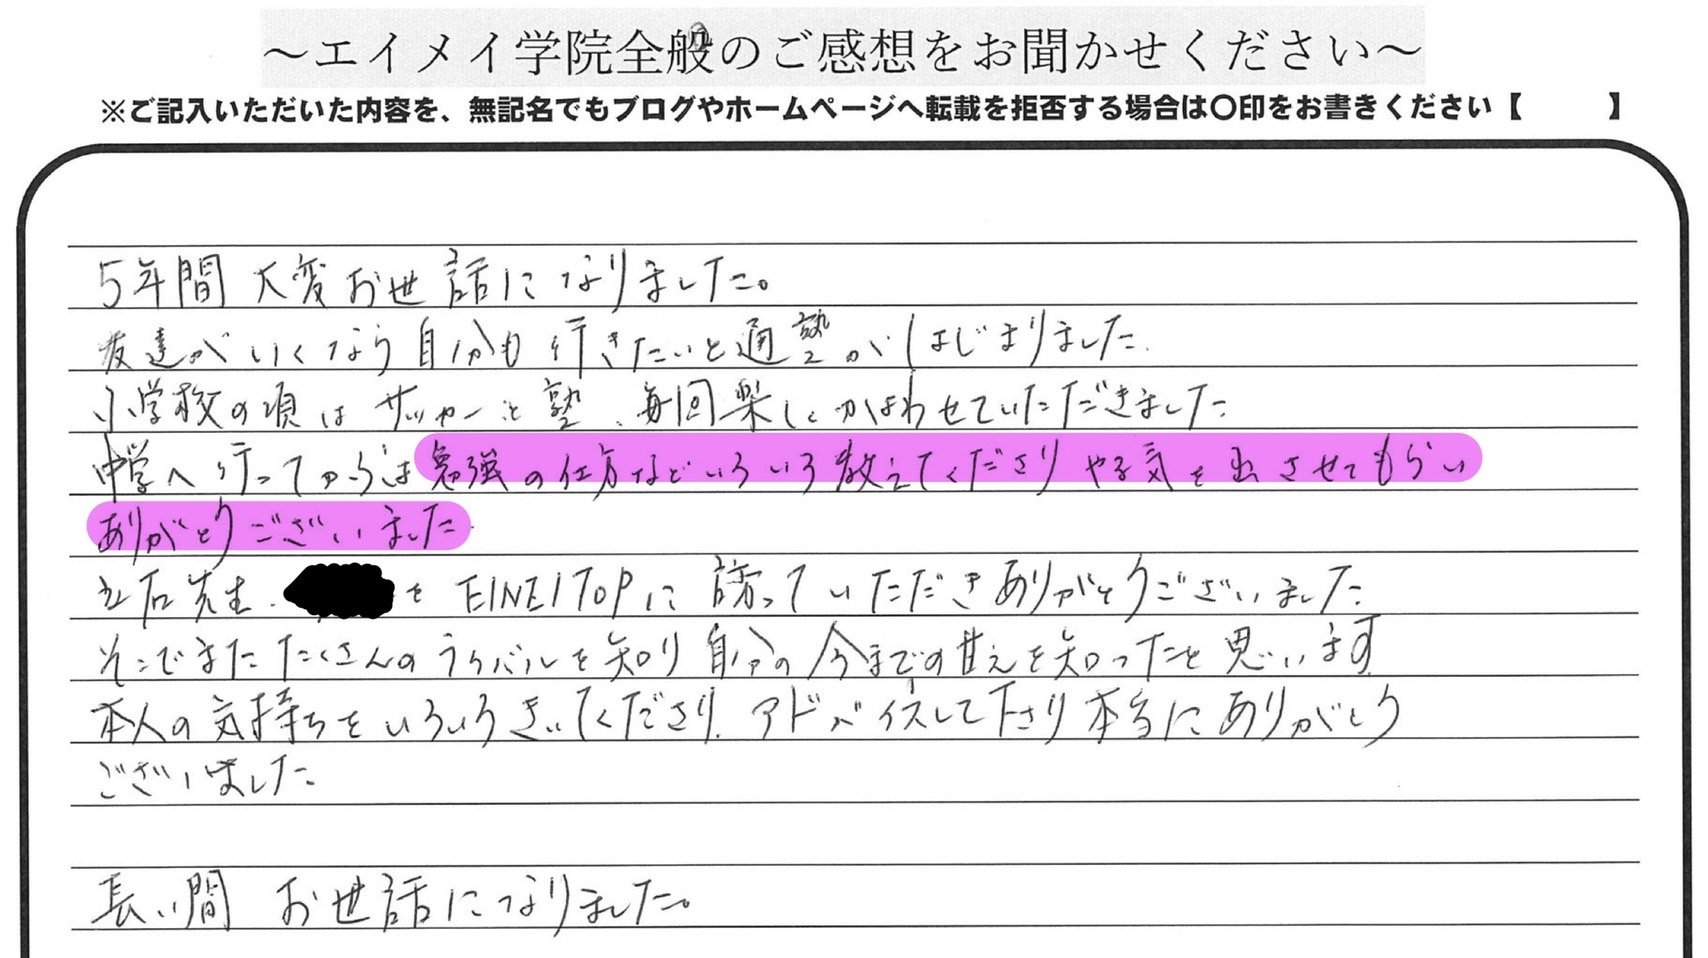 ～エイメイ学院全般のご感想をお聞かせください～
※ご記入いただいた内容を、無記名でもブログやホームページへ転載を拒否する場合は〇印をお書きください【　　】
5年間 大変お世話になりました。
友達がいくなら自分も行きたいと通塾がはじまりました.
小学校の頃は サッカーと塾、毎回楽しくかよわせていただきました.
中学へ行ってからは勉強の仕方などいろいろ教えてくださりやる気を出させてもらい
ありがとうございました.
立石先生、を EIMEI TOPに誘っていただきありがとうございました.
そこでまた たくさんのライバルを知り自分の今までの甘えを知ったと思います
本人の気持ちをいろいろきいてくださり、アドバイスして下さり本当にありがとう
ございました
長い間 お世話になりました。